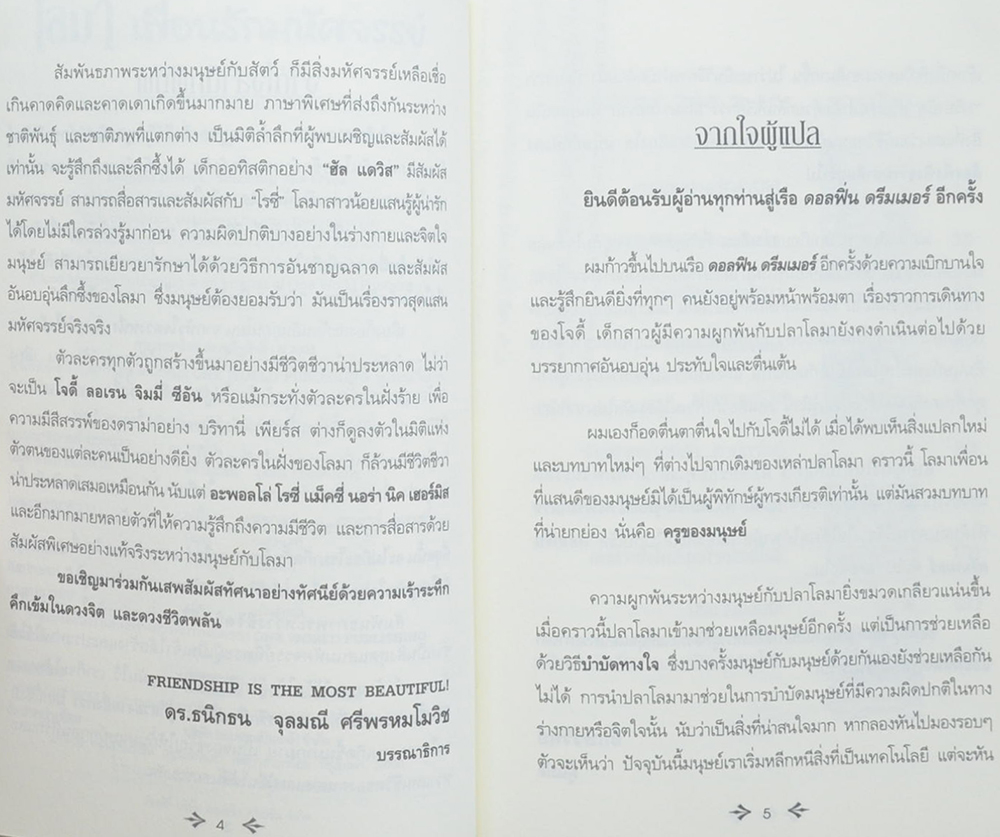 สัมพันธภาพระหว่างมนุษย์กับสัตว์ ก็มีสิ่งมหัศจรรย์เหลือเชื่อ
เกินคาดคิดและคาดเดาเกิดขึ้นมากมาย ภาษาพิเศษที่ส่งถึงกันระหว่าง
ชาติพันธุ์ และชาติภพที่แตกต่าง เป็นมิติล้ำลึกที่ผู้พบเผชิญและสัมผัสได้
เท่านั้น จะรู้สึกถึงและลึกซึ้งได้ เด็กออทิสติกอย่าง “ฮัล แดวิส” มีสัมผัส
มหัศจรรย์ สามารถสื่อสารและสัมผัสกับ “โรซี่” โลมาสาวน้อยแสนรู้ผู้น่ารัก
ได้โดยไม่มีใครล่วงรู้มาก่อน ความผิดปกติบางอย่างในร่างกายและจิตใจ
มนุษย์ สามารถเยียวยารักษาได้ด้วยวิธีการอันชาญฉลาด และสัมผัส
อันอบอุ่นลึกซึ้งของโลมา ซึ่งมนุษย์ต้องยอมรับว่า มันเป็นเรื่องราวสุดแสน
มหัศจรรย์จริงจริง
ตัวละครทุกตัวถูกสร้างขึ้นมาอย่างมีชีวิตชีวาน่าประหลาด ไม่ว่า
จะเป็น โจดี้ ลอเรน จิมมี่ ซีอัน หรือแม้กระทั่งตัวละครในฝั่งร้าย เพื่อ
ความมีสีสรรพ์ของดราม่าอย่าง บริทานี่ เพียร์ส ต่างก็ดูลงตัวในมิติแห่ง
ตัวตนของแต่ละคนเป็นอย่างดียิ่ง ตัวละครในฝั่งของโลมา ก็ล้วนมีชีวิตชีวา
น่าประหลาดเสมอเหมือนกัน นับแต่ อะพอลโล่ โรซี่ แม็คซี่ นอร่า นิค เฮอร์มิส
และอีกมากมายหลายตัวที่ให้ความรู้สึกถึงความมีชีวิต และการสื่อสารด้วย
สัมผัสพิเศษอย่างแท้จริงระหว่างมนุษย์กับโลมา
ขอเชิญมาร่วมกันเสพสัมผัสทัศนาอย่างทัศนีย์ด้วยความเร้าระทึก
คึกเข้มในดวงจิต และดวงชีวิตพลัน
FRIENDSHIP IS THE MOST BEAUTIFUL!
ดร.ธนิกธน จุลมณี ศรีพรหมโมวิช
บรรณาธิการ
4
จากใจผู้แปล
ยินดีต้อนรับผู้อ่านทุกท่านสู่เรือ ดอลฟิ่น ดรีมเมอร์ อีกครั้ง
ผมก้าวขึ้นไปบนเรือ ดอลฟิน ดรีมเมอร์ อีกครั้งด้วยความเบิกบานใจ
และรู้สึกยินดียิ่งที่ทุกๆ คนยังอยู่พร้อมหน้าพร้อมตา เรื่องราวการเดินทาง
ของโจดี้ เด็กสาวผู้มีความผูกพันกับปลาโลมายังคงดำเนินต่อไปด้วย
บรรยากาศอันอบอุ่น ประทับใจและตื่นเต้น
ผมเองก็อดตื่นตาตื่นใจไปกับโจดี้ไม่ได้ เมื่อได้พบเห็นสิ่งแปลกใหม่
และบทบาทใหม่ๆ ที่ต่างไปจากเดิมของเหล่าปลาโลมา คราวนี้ โลมาเพื่อน
ที่แสนดีของมนุษย์มิได้เป็นผู้พิทักษ์ผู้ทรงเกียรติเท่านั้น แต่มันสวมบทบาท
ที่น่ายกย่อง นั่นคือ ครูของมนุษย์
ความผูกพันระหว่างมนุษย์กับปลาโลมายิ่งขมวดเกลียวแน่นขึ้น
เมื่อคราวนี้ปลาโลมาเข้ามาช่วยเหลือมนุษย์อีกครั้ง แต่เป็นการช่วยเหลือ
ด้วยวิธีบำบัดทางใจ ซึ่งบางครั้งมนุษย์กับมนุษย์ด้วยกันเองยังช่วยเหลือกัน
ไม่ได้ การนำปลาโลมามาช่วยในการบำบัดมนุษย์ที่มีความผิดปกติในทาง
ร่างกายหรือจิตใจนั้น นับว่าเป็นสิ่งที่น่าสนใจมาก หากลองหันไปมองรอบๆ
ตัวจะเห็นว่า ปัจจุบันนี้มนุษย์เราเริ่มหลีกหนีสิ่งที่เป็นเทคโนโลยี แต่จะหัน
5